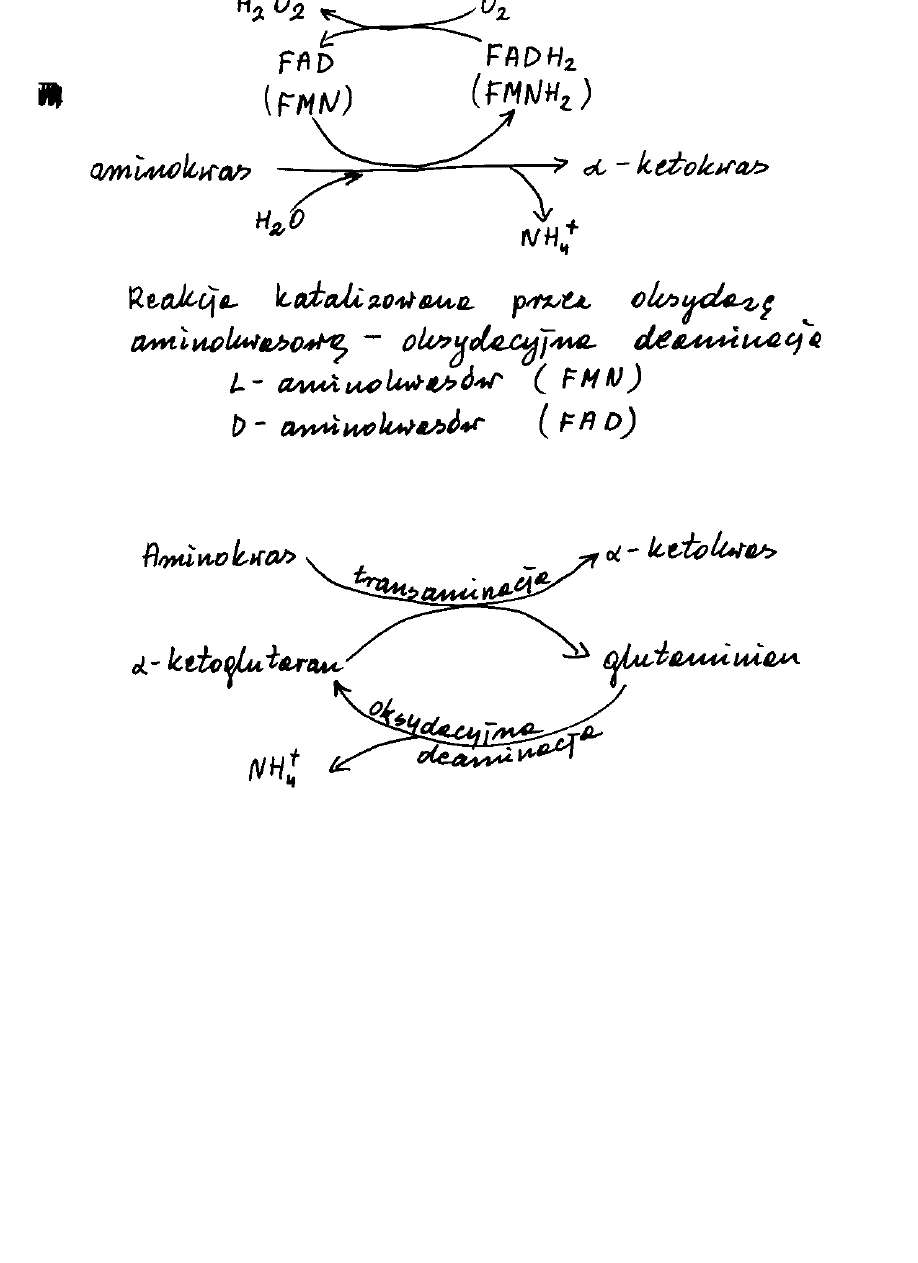 H2O2 O2
FAD FADH2
(FMN) (FMNH2)
aminokwas α-ketokwas
H2O NH4+
Reakcja katalizowana przez oksydazę
aminokwasową - oksydacyjna deaminacja
L- aminokwasów (FMN)
D- aminokwasów (FAD)
Aminokwas α-ketokwas
transaminacja
α-ketoglutaran glutaminian
oksydacyjna
deaminacja
NH4+